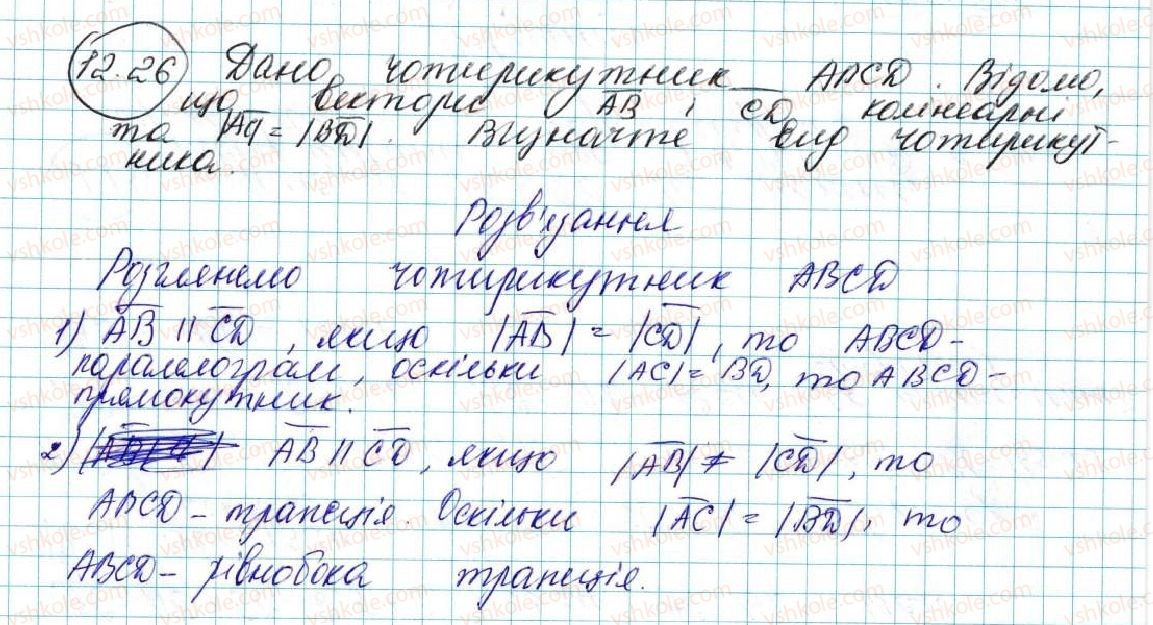 12.26 Дано чотирикутник ABCD. Відомо,
що вектори AB і CD колінеарні
та |AC| = |BD|. Визначте вид чотирикут-
ника.
Розв'язання
Розглянемо чотирикутник ABCD
1) AB || CD, якщо |AB| = |CD|, то ABCD –
паралелограм, оскільки |AC| = BD, то ABCD –
прямокутник.
2) AB || CD, якщо |AB| ≠ |CD|, то
ABCD – трапеція. Оскільки |AC| = |BD|, то
ABCD – рівнобока трапеція.